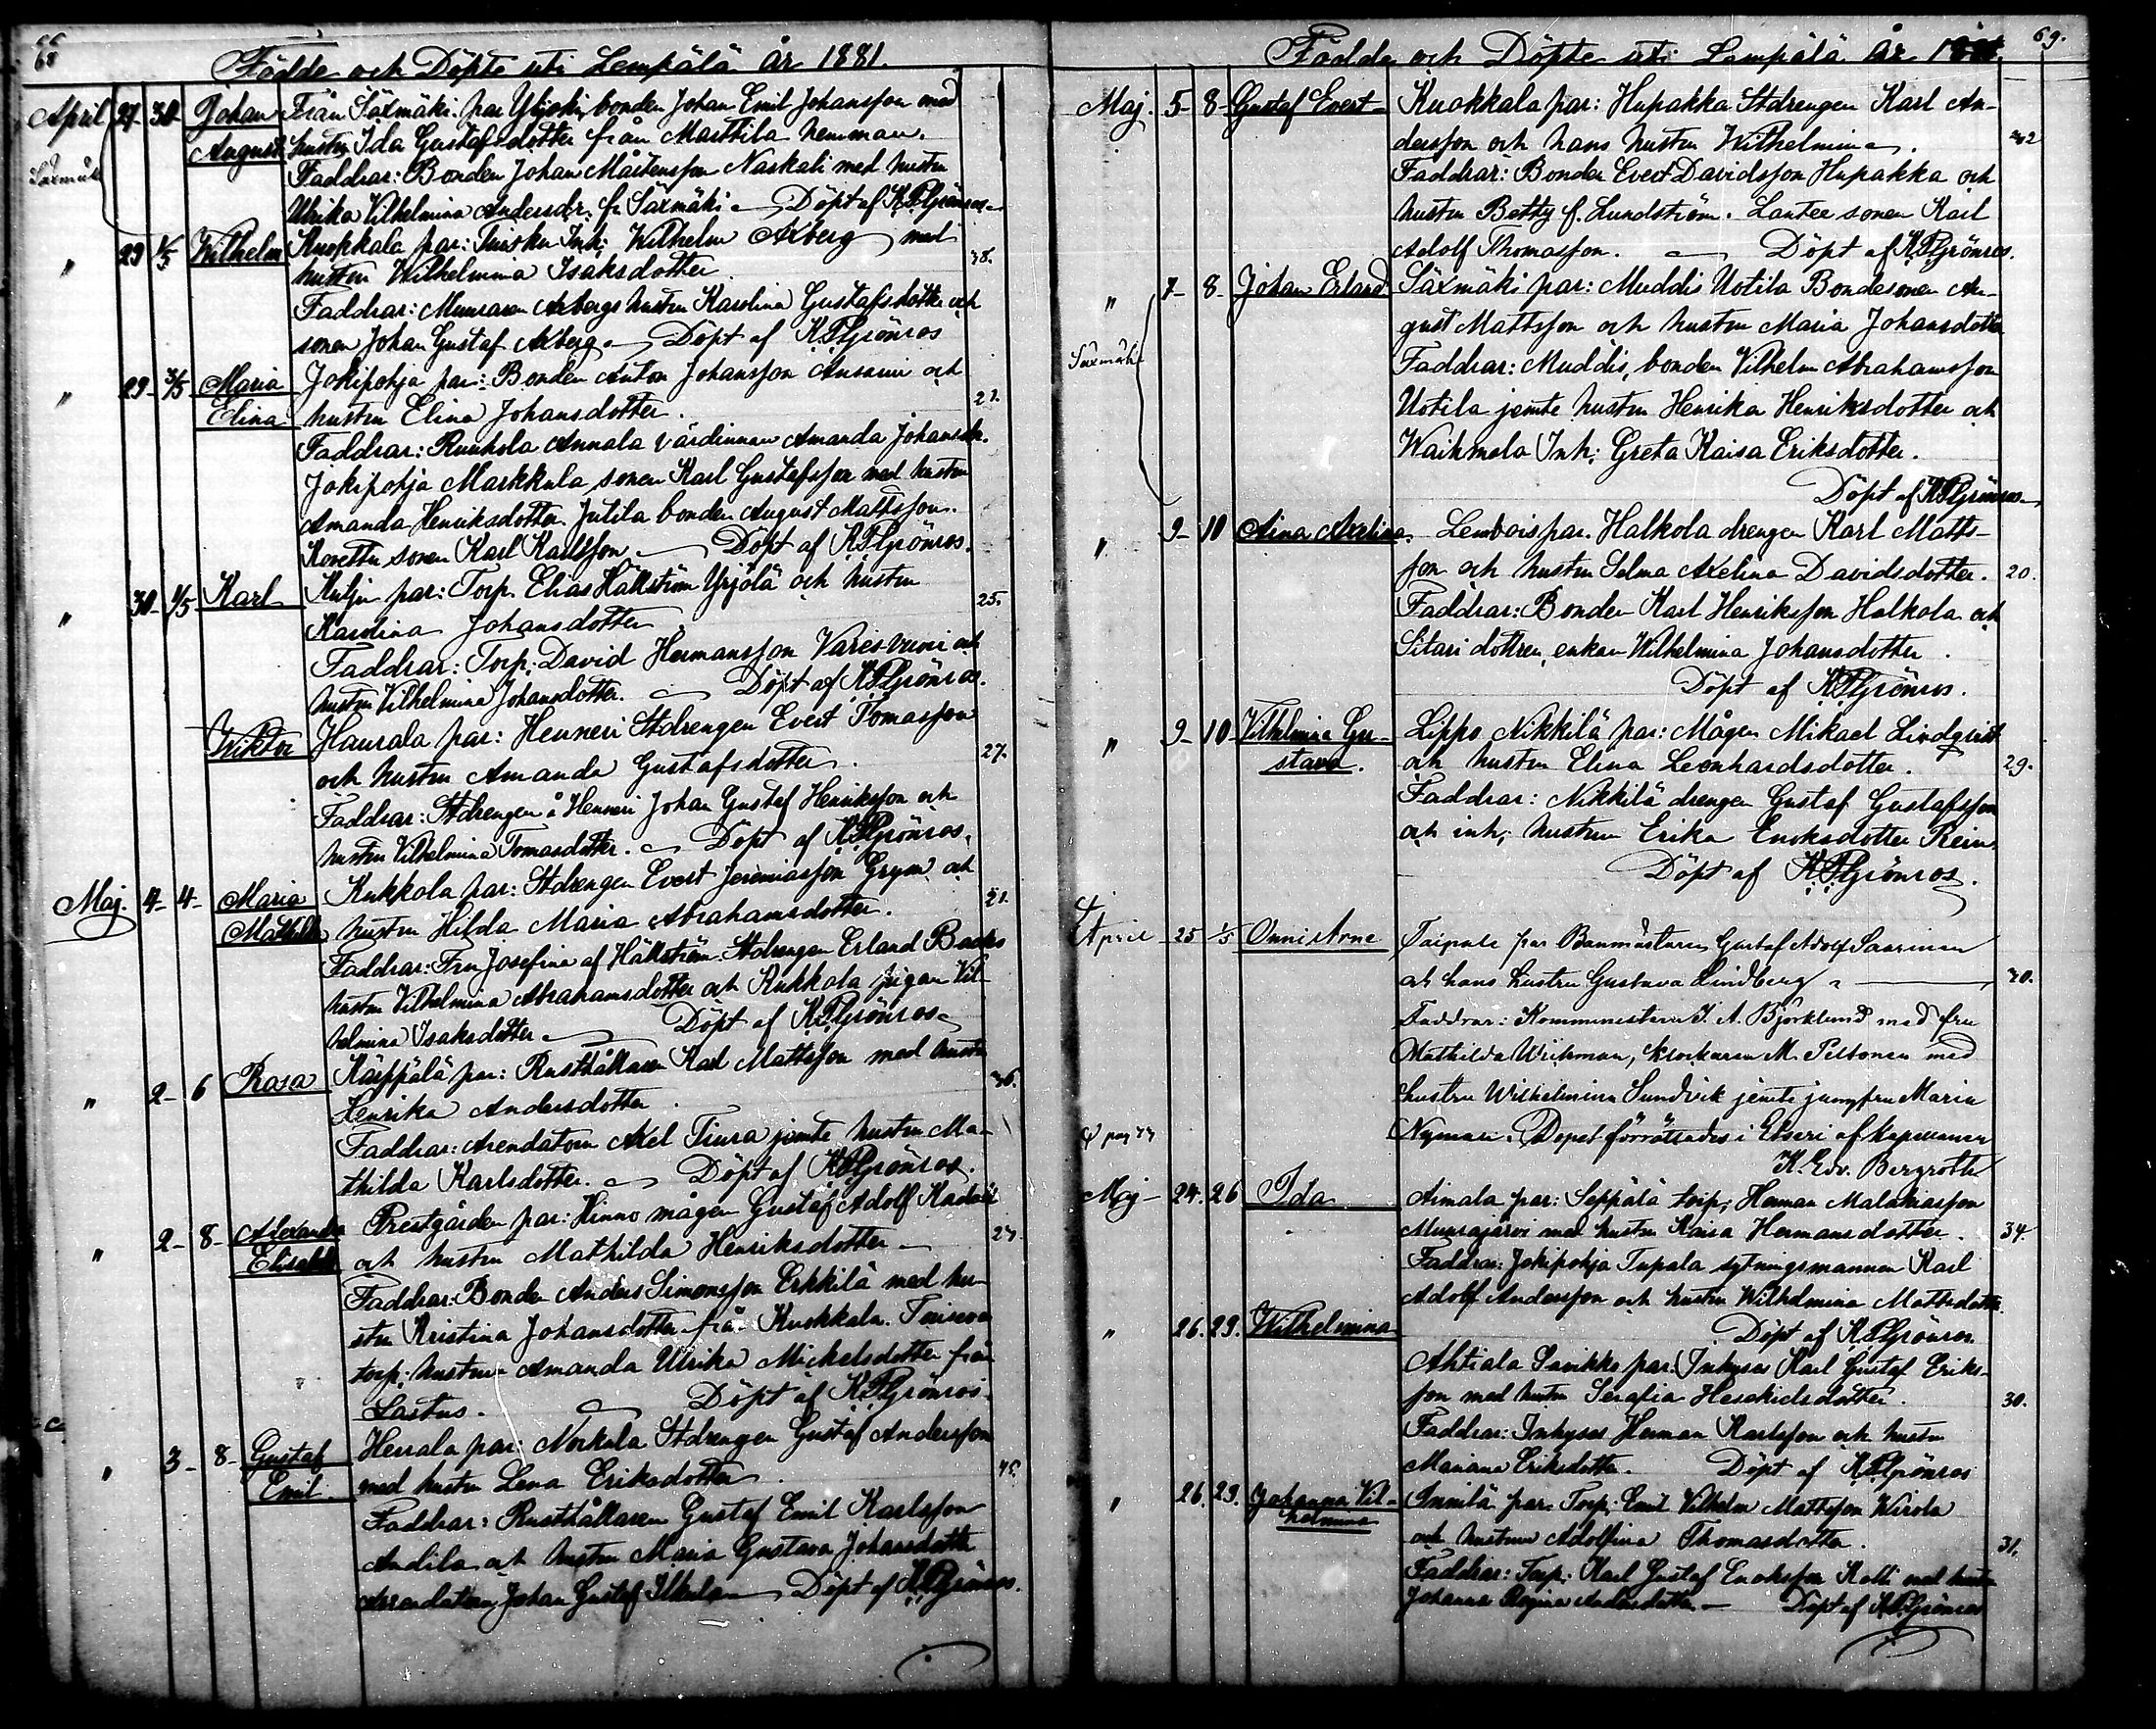 68
Födde och Döpte uti Lempälä år 1881.
April 27. 30. Johan Från Säxmäki par Yljoki bonden Johan Emil Johansson med
August hustru Ida Gustafsdotter från Marttila hemman.
Säxmäki Faddrar: Bonden Johan Mårtensson Naskali med hustru
Ulrika Vilhelmina Andersdr. fr. Säxmäki – Döpt af K.F. Grönros
" 29 1/5 Wilhelm Kuokkala par: Inh: Wilhelm Axberg med
hustru Wilhelmina Isaksdotter. 38.
Faddrar: Muraren Axbergs hustru Karolina Gustafsdotter och
sonen Johan Gustaf Axberg. – Döpt af K.F. Grönros
" 29 3/5 Maria Jokipohja par: Bonden Anton Johansson Ansami och
Elina hustru Elina Johansdotter.
Faddrar: Annala värdinnan Amanda Johansdr.
Jokipohja Markkula sonen Karl Gustafsson med hustru
Amanda Henriksdotter. Jutila bonden August Mattsson.
sonen Karl Karlsson. – Döpt af K.F. Grönros.
" 30 1/5 Karl Kulju par: Torp. Elias Hällström Yrjölä och hustru
Karolina Johansdotter 25.
Faddrar: Torp: David Hermansson Varesvuori och
hustru Vilhelmina Johansdotter. – Döpt af K.F. Grönros.
Wiktor Haurala par: Henneri Stdrengen Evert Tomasson
och hustru Amanda Gustafsdotter. 27.
Faddrar: Stdrengen å Henneri Johan Gustaf Henriksson och
hustru Vilhelmina Tomasdotter. – Döpt af K.F. Grönros.
Maj. 4 4 Maria Kukkola par: Stdrengen Evert Jeremiasson Grym och
Mathilda hustru Hilda Maria Abrahamsdotter. 21.
Faddrar: Fru Josefina af Hällström Stdrengen Erland Backs
hustru Vilhelmina Abrahamsdotter och Kukkola pigan Vil-
helmina Isaksdotter – Döpt af K.F. Grönros
" 2 6 Rosa Käppälä par: Rusthållaren Karl Mattsson med hustru
Henrika Andersdotter. 36.
Faddrar: Arendatorn Axel Tiura jemte hustru Ma-
thilda Karlsdotter. – Döpt af K.F. Grönros.
" 2 8 Alexandra Prestgården par: Hinno mågen Gustaf Adolf
Elisabet och hustru Mathilda Henriksdotter –
Faddrar: Bonden Anders Simonsson Erkkilä med hu-
stru Kristina Johansdotter från Kuokkala.
torp: hustru Amanda Ulrika Mickelsdotter från
Lastus. – Döpt af K.F. Grönros
" 3 8 Gustaf Herrala par: Stdrengen Gustaf Andersson
Emil. med hustru Lena Eriksdotter.
Faddrar: Rusthållaren Gustaf Emil Karlsson
Andila och hustru Maria Gustava Johansdotter
Arrendatorn Johan Gustaf – Döpt af K.F. Grönros.
69.
Födde och Döpte uti Lempälä år 1881.
Maj. 5 8 Gustaf Evert Kuokkala par: Hupakka Stdrengen Karl An-
dersson och hans hustru Wilhelmina. 42
Faddrar: Bonden Evert Davidsson Hupakka och
hustru Betty f. Lundström. Lantee sonen Karl
Adolf Thomasson. – Döpt af K.F. Grönros.
" 7 8 Johan Erland Säxmäki par: Muddis Uotila Bondesonen Au-
gust Mattsson och hustru Maria Johansdotter
Säxmäki Faddrar: Muddis, bonden Vilhelm Abrahamsson
Uotila jemte hustru Henrika Henriksdotter och
Waihmala Inh: Greta Kaisa Eriksdotter.
Döpt af K.F. Grönros
" 9 10 Aina Axelina Lembois par. Halkola drengen Karl Matts-
son och hustru Selma Axelina Davidsdotter. 20.
Faddrar: Bonden Karl Henriksson Halkola och
Sitari dottren, enkan Wilhelmina Johansdotter.
Döpt af K.F. Grönros.
" 9 10 Vilhelmina Gu- Lippo Nikkilä par: Mågen Mikael Lindqvist
stava. och hustru Elina Leonhardsdotter. 29.
Faddrar: Nikkilä drengen Gustaf Gustafsson
och inh: hustru Erika Enoksdotter Rein.
Döpt af K.F. Grönros.
April 25 1/5 Onni Arne Taipale par Banmästaren Gustaf Adolf Saarinen
och hans hustru Gustava Lindberg – 30.
Faddrar: Komministern K. A. Björklund med fru
Mathilda Wichman, klockaren M. Peltonen med
hustru Wilhelmina Sundvik jemte jungfru Maria
Nyman. Dopet förrättades i Etseri af kapellanen
K. Edv. Bergroth
Maj 24. 26 Ida Aimala par: Seppälä torp: Herman Malakiasson
Mursajärvi med hustru Kaisa Hermansdotter. 34.
Faddrar: Jokipohja Tupala sytningsmannen Karl
Adolf Andersson och hustru Wilhelmina Mattsdotter
Döpt af K.F. Grönros.
" 26. 29. Wilhelmina Ahtiala Savikko par: Inhyses Karl Gustaf Eriks-
son med hustru Serafia Hesekielsdotter. 30.
Faddrar: Inhyses Herman Karlsson och hustru
Mariana Eriksdotter. Döpt af K.F. Grönros
" 26. 29. Johanna Vil- Innilä par: Torp: Emil Vilhelm Mattsson Wirola
helmina och hustrun Adolfina Thomasdotter. 31.
Faddrar: Torp: Karl Gustaf Enoksson Kolli med hustru
Johanna Regina Andersdotter – Döpt af K.F. Grönros